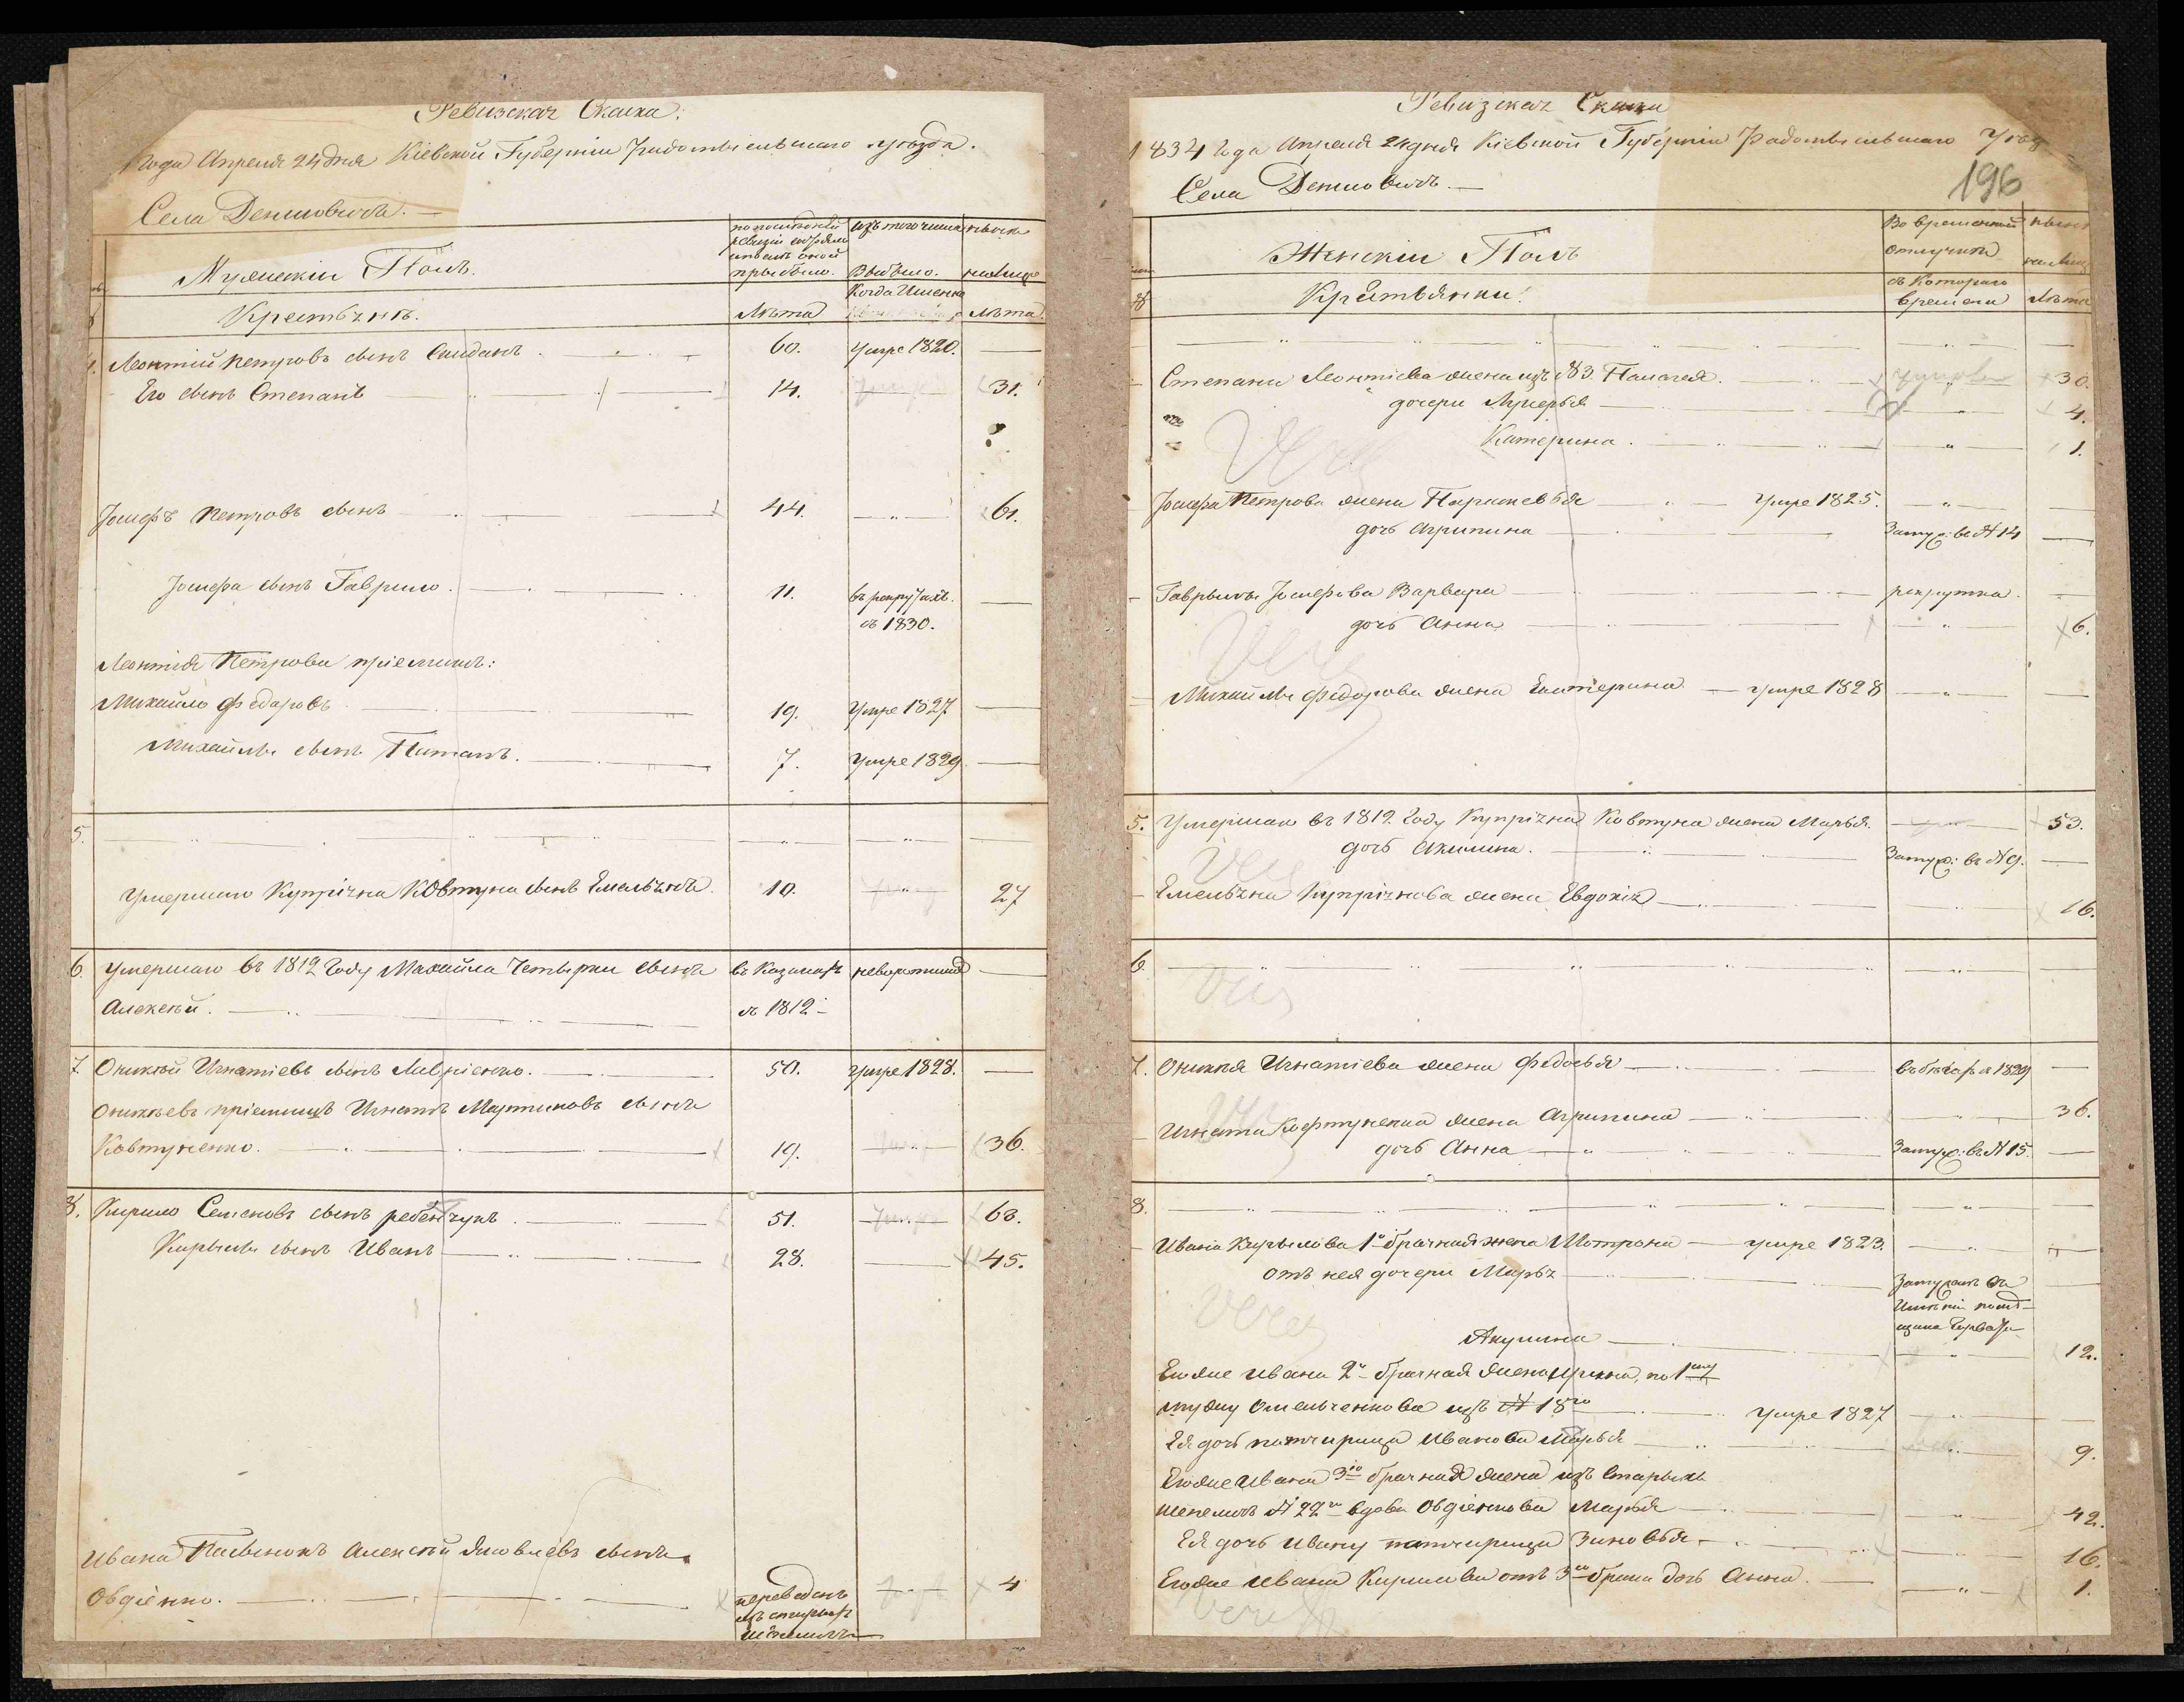 Ревизская Скаска:
года Апреля 24 дня Кіевской Губерніи Радомысльскаго уѣзда.
Села Демновичъ.
Мужескій Полъ.
по послѣдней ревизіи состояло и послѣ оной прыбыло.
изъ того числа Выбыло.
нынѣ налице
Крестьянъ.
Лѣта
Когда Именно
Лѣта.
Леонтій Петровъ сынъ 60. умре 1820.
Его сынъ Степанъ 14. 31.
Іосифъ Петровъ сынъ 44. 61.
Іосифа сынъ Гаврило. 11. въ рекрутахъ.
съ 1830.
Леонтія Петрова пріемышъ:
Михайло Федоровъ 19. Умре 1827
Михайлы сынъ Потапъ. 7. Умре 1829
5.
Умершаго Купріяна Ковтуна сынъ Емельянъ 10. 27
6. Умершаго въ 1812 Году Михайла Четырки сынъ въ Казакахъ невозвратился
Алексѣй. съ 1812
7. Оникѣй Игнатіевъ сынъ Лавріенко. 50. умре 1828.
Оникѣевъ пріемышъ Игнатъ Мартиновъ сынъ
Ковтуненко. 19. 36.
8. Кирило Семеновъ сынъ ребенчукъ. 51. 68.
Кирылы сынъ Иванъ 28. 45.
Ивана Пасынокъ Алексѣй Яковлевъ сынъ
Овдіенко. переведенъ 4
изъ старыхъ
Шепеличъ
Ревизская Скаска
1834 года Апреля 24 дня Кіевской Губерніи Радомысльскаго Уѣзд
196
Села Демновичъ.
Женскій Полъ
Во временной отлучкѣ
нынѣ налице
Крестьянки.
съ Котораго времени
Лѣта
Степана Леонтіева жена изъ №83. Палагея. 30.
дочери Лукерья 4.
Катерина. 1.
Іосифа Петрова жена Параскевья Умре 1825.
дочь Агрипина Замуж: въ №14
Гаврылы Іосифова Варвара рекрутка.
дочь Анна 6.
Михайлы Федорова жена Екатерина умре 1828
5. Умершаго въ 1812 Году Купріяна Ковтуна жена Марья. 53.
дочь Акилина. Замуж: въ №9.
Емельяна Купріянова жена Евдокія 16.
6.
7. Оникѣя Игнатіева жена Федосья въ бѣгахъ съ 1829
Игната Ковтуненка жена Агрипина 36.
дочь Анна Замуж: въ №15.
8.
Ивана Кирылова 1о брачная жена Мотрона умре 1823.
отъ нея дочери Марья Замужемъ въ
Имѣніи помѣ-
щика
Акулина 12.
Егоже Ивана 2о брачная жена Ирина, по 1му
мужу Омельченкова изъ № 18го умре 1827
Ея дочь патчирица Иванова Марья 9.
Егоже Ивана 3ю брачная жена изъ Старыхъ
Шепеличъ № 22го вдова Овдіенкова Марья 42.
Ея дочь Ивану патчирица Зиновья. 16.
Егоже Ивана Кирилова отъ 3го брака дочь Анна. 1.